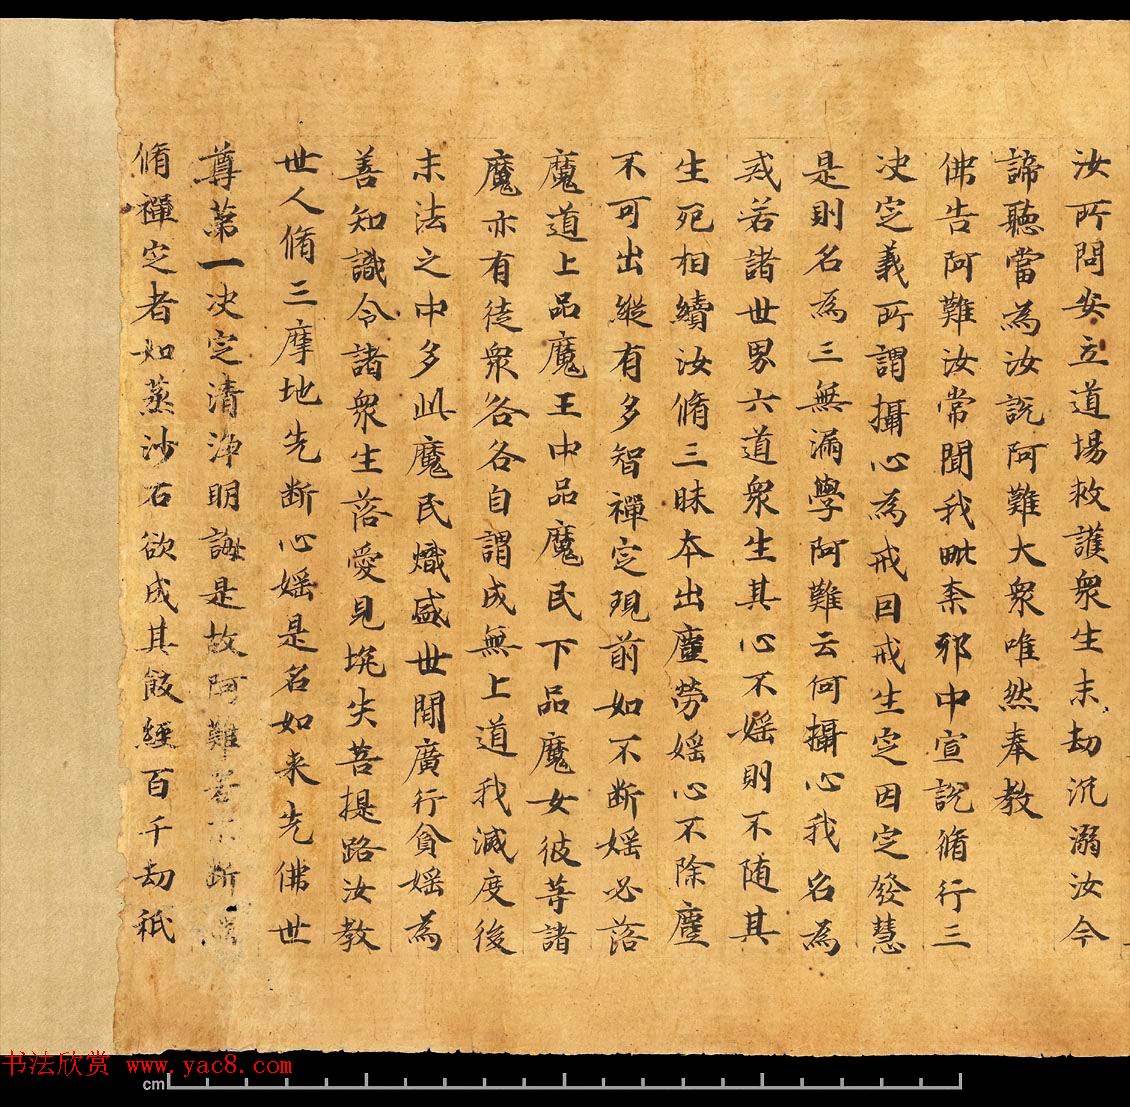 汝所問安立道場救護衆生末劫沉溺汝今
諦聽當為汝説阿難大衆唯然奉教
佛告阿難汝常聞我毗柰耶中宣説脩行三
决定義所謂攝心為戒因戒生定因定發慧
是則名為三無漏學阿難云何攝心我名為
戒若諸世界六道衆生其心不婬則不随其
生死相續汝脩三昧本出塵勞婬心不除塵
不可出縱有多智禪定現前如不断婬必落
魔道上品魔王中品魔民下品魔女彼等諸
魔亦有徒衆各各自謂成無上道我滅度後
末法之中多此魔民熾盛世間廣行貪婬為
善知識令諸衆生落愛見坑失菩提路汝教
世人脩三摩地先断心婬是名如来先佛世
尊苐一决定清淨明誨是故阿難若不断婬
脩禪定者如蒸沙石欲成其飯經百千劫秖
书法欣赏 www.yac8.com
cm